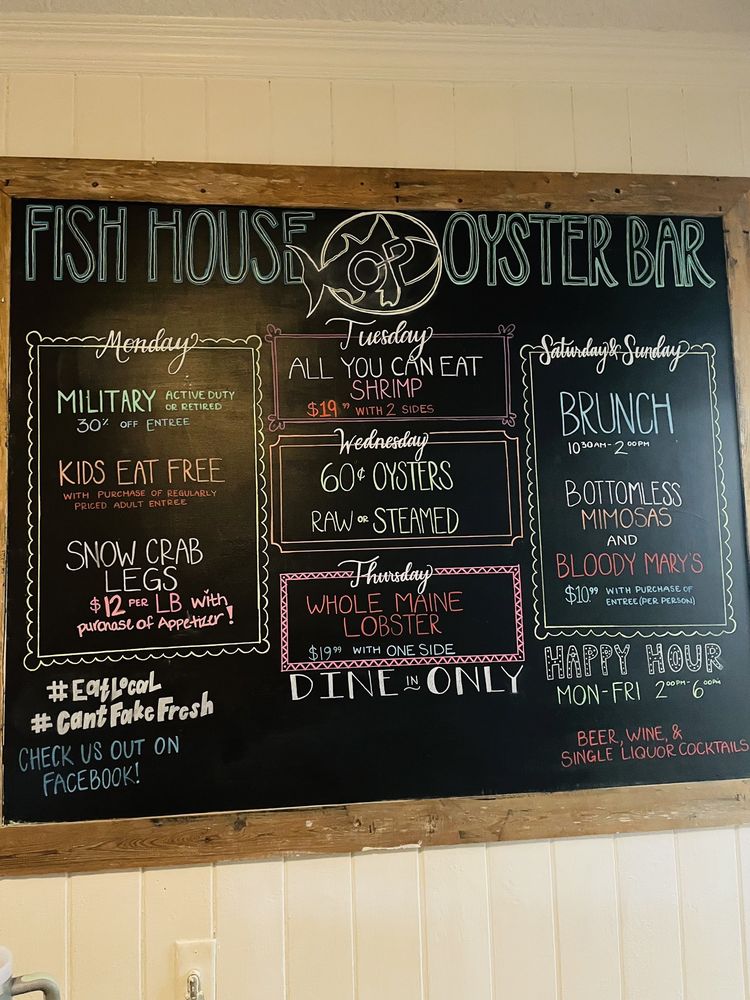 FISH HOUSE OYSTER BAR
Monday
MILITARY ACTIVE DUTY
OR RETIRED
30% OFF ENTREE
KIDS EAT FREE
WITH PURCHASE OF REGULARLY
PRICED ADULT ENTREE
SNOW CRAB
LEGS
$12 PER LB with
purchase of Appetizer!
#EatLocal
#CantFakeFresh
CHECK US OUT ON
FACEBOOK!
Tuesday
ALL YOU CAN EAT
SHRIMP
$19.99 WITH 2 SIDES
Wednesday
60¢ OYSTERS
RAW OR STEAMED
Thursday
WHOLE MAINE
LOBSTER
$19.99 WITH ONE SIDE
DINE IN ONLY
Saturday & Sunday
BRUNCH
10:30AM - 2:00PM
BOTTOMLESS
MIMOSAS
AND
BLOODY MARY'S
$10.99 WITH PURCHASE OF
ENTREE (PER PERSON)
HAPPY HOUR
MON-FRI 2:00PM - 6:00PM
BEER, WINE, &
SINGLE LIQUOR COCKTAILS